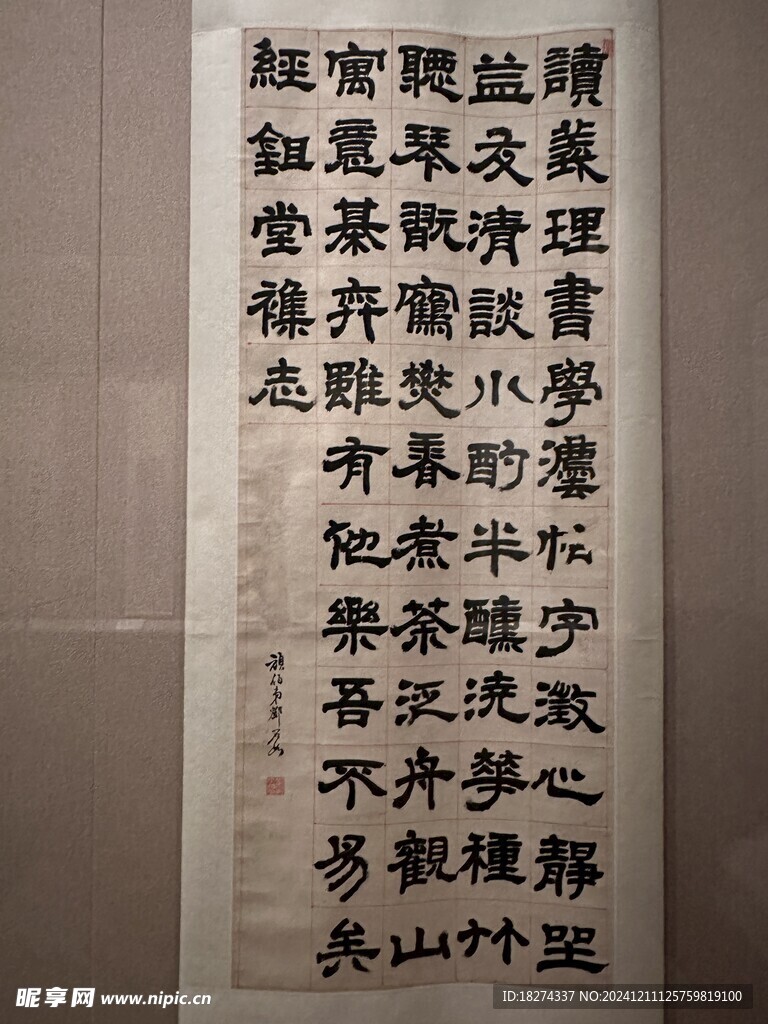 讀義理書學灋帖字澂心靜坐
益友清談小酌半醺澆華種竹
聽琴翫鶴燓香煮茶泛舟觀山
寓意棊弈雖有他樂吾不易矣
經鉏堂襍志
頑伯弟鄧石如
昵享网 www.nipic.cn
ID:18274337 NO:20241211125759819100